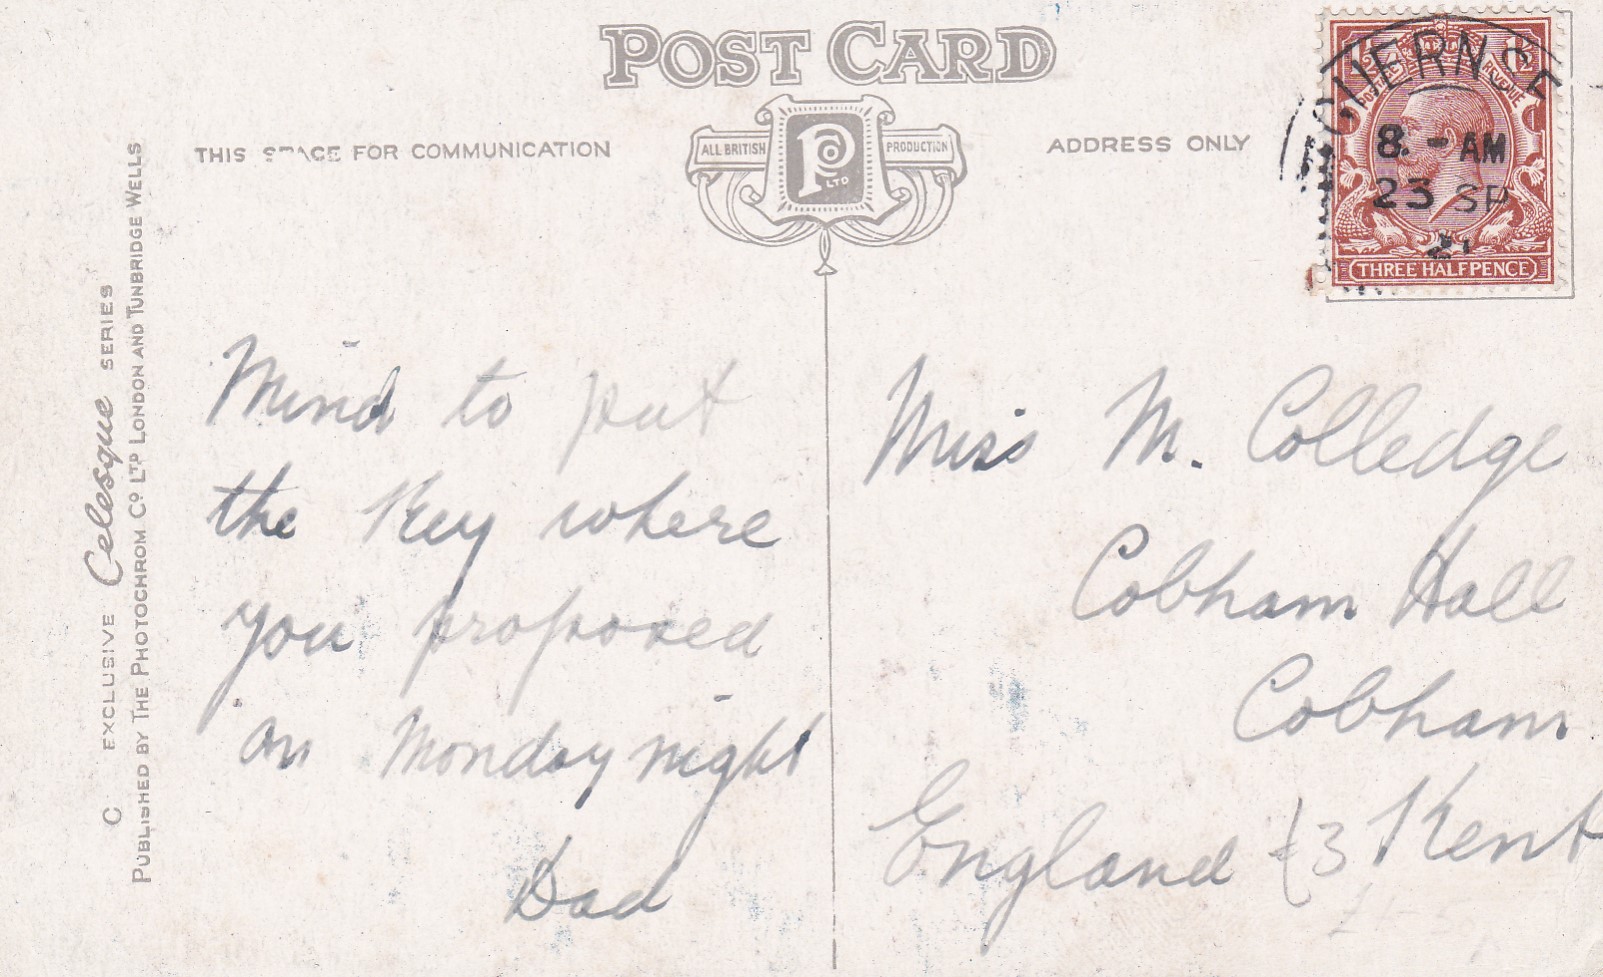 POST CARD
THIS SPACE FOR COMMUNICATION
ALL BRITISH PRODUCTION
P Co LTD
ADDRESS ONLY
GUERNSEY
8. - AM
23 SP
21
1½ 1½
POSTAGE REVENUE
THREE HALFPENCE
C EXCLUSIVE Celesque SERIES
PUBLISHED BY THE PHOTOCHROM CO LTD LONDON AND TUNBRIDGE WELLS
Mind to put
the Key where
you proposed
on Monday night
Dad
Miss M. Colledge
Cobham Hall
Cobham
England Kent
£3